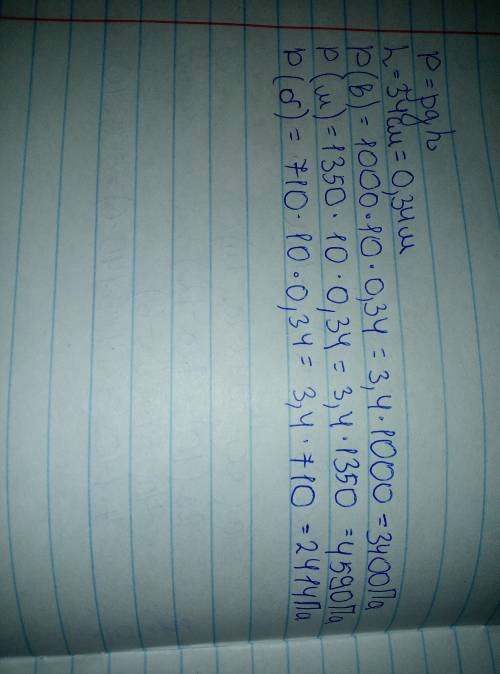 p = ρgh
h = 34см = 0,34м
p(в) = 1000·10·0,34 = 3,4·1000 = 3400Па
p(м) = 1350·10·0,34 = 3,4·1350 = 4590Па
p(б) = 710·10·0,34 = 3,4·710 = 2414Па